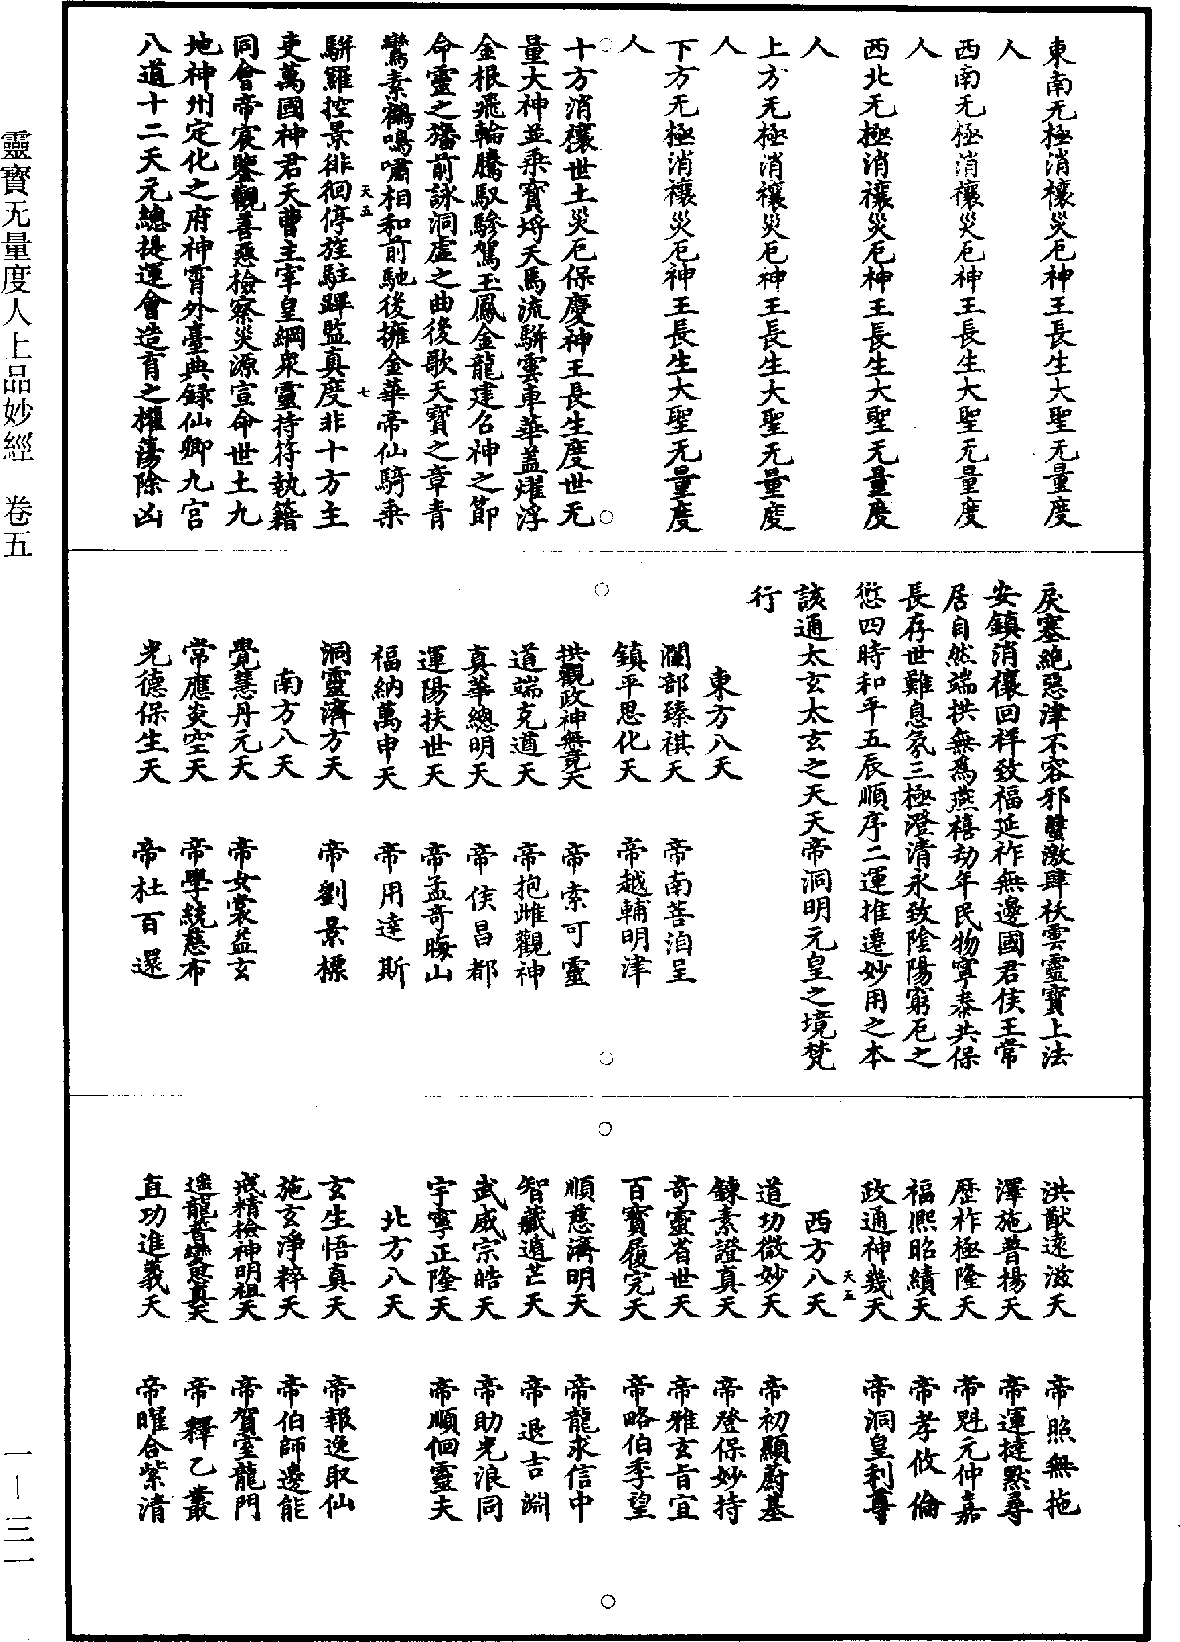 東南无極消禳災厄神王長生大聖无量度
人
西南无極消禳災厄神王長生大聖无量度
人
西北无極消禳災厄神王長生大聖无量度
人
上方无極消禳災厄神王長生大聖无量度
人
下方无極消禳災厄神王長生大聖无量度
人
十方消禳世土災厄保慶神王長生度世无
量大神並乘寶埓天馬流駢雲車華蓋燿浮
金根飛輪騰馭驂駕玉鳳金龍建召神之節
命靈之旛前詠洞虛之曲後歌天寶之章青
鸞素鶴鳴嘯相和前馳後擁金華帝仙騎乘
天五 七
駢羅控景徘徊停旌駐蹕監真度非十方主
吏萬國神君天曹主宰皇綱衆靈持符執籍
同會帝宸鑒觀善惡檢察災源宣命世土九
地神州定化之府神霄外臺典録仙卿九宮
八道十二天元總提運會造育之權蕩除凶
戾塞絶惡津不容邪蠥激肆祅雲靈寶上法
安鎮消禳回祥致福延祚無邊國君侯王常
居自然端拱無爲燕禧劫年民物寧泰共保
長存世難息氛三極澄清永致陰陽窮厄之
愆四時和平五辰順序二運推遷妙用之本
該通太玄太玄之天天帝洞明元皇之境梵
行
東方八天
瀾部臻祺天 帝南菩洎呈
鎮平思化天 帝越輔明津
拱觀政神無竟天 帝索可靈
道端克遒天 帝抱雌觀神
真華總明天 帝侯昌都
運陽扶世天 帝孟奇晦山
福納萬申天 帝用達斯
洞靈濟方天 帝劉景標
南方八天
覺慧丹元天 帝女裳益玄
常應炎空天 帝學統慈布
光德保生天 帝杜百還
洪猷遠滋天 帝照無拖
澤施普揚天 帝運撻黙尋
歷祚極隆天 帝魁元仲嘉
福熈昭績天 帝孝攸倫
政通神幾天 帝洞皇利尊
天五
西方八天
道功微妙天 帝初顯蔚基
鍊素證真天 帝登保妙持
奇靈省世天 帝雅玄旨宜
百寶履完天 帝略伯季望
順慈濟明天 帝龍求信中
智藏遁芒天 帝退吉淵
武威宗皓天 帝助光浪同
宇寧正隆天 帝順佪靈夫
北方八天
玄生悟真天 帝報逸取仙
施玄淨粹天 帝伯師邊能
戒精檢神明祖天 帝賀室龍門
遥龍普變息真天 帝釋乙叢
直功進義天 帝曜合紫清
靈寶无量度人上品妙經 卷五
一—三一